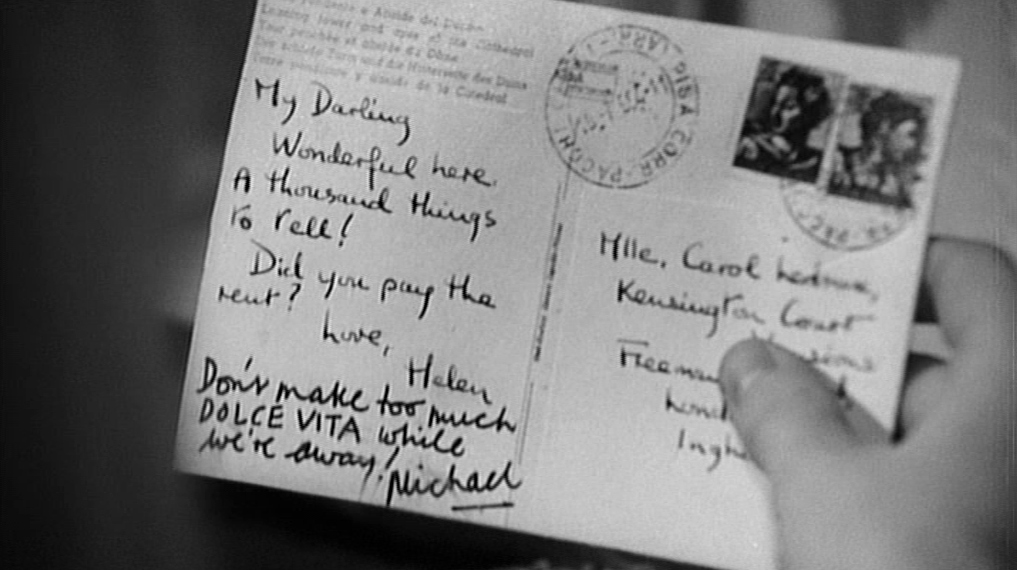 e Abside del Duomo
Leaning tower and apse of the Cathedral
Tour penchée et abside du Dôme
Der schiefe Turm und die Hinterseite des Doms
Torre pendiente y ábside de la Catedral
My Darling
Wonderful here.
A thousand things
to tell!
Did you pay the
rent?
Love,
Helen
Don't make too much
DOLCE VITA while
we're away!
Michael
PISA CORR. PACCHI
Mlle. Carol
Kensington Court
Mansions